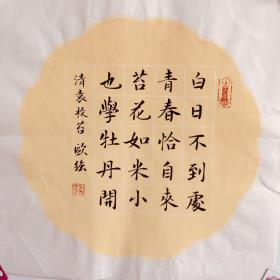 白日不到處
青春恰自來
苔花如米小
也學牡丹開
清袁枚苔 歐強